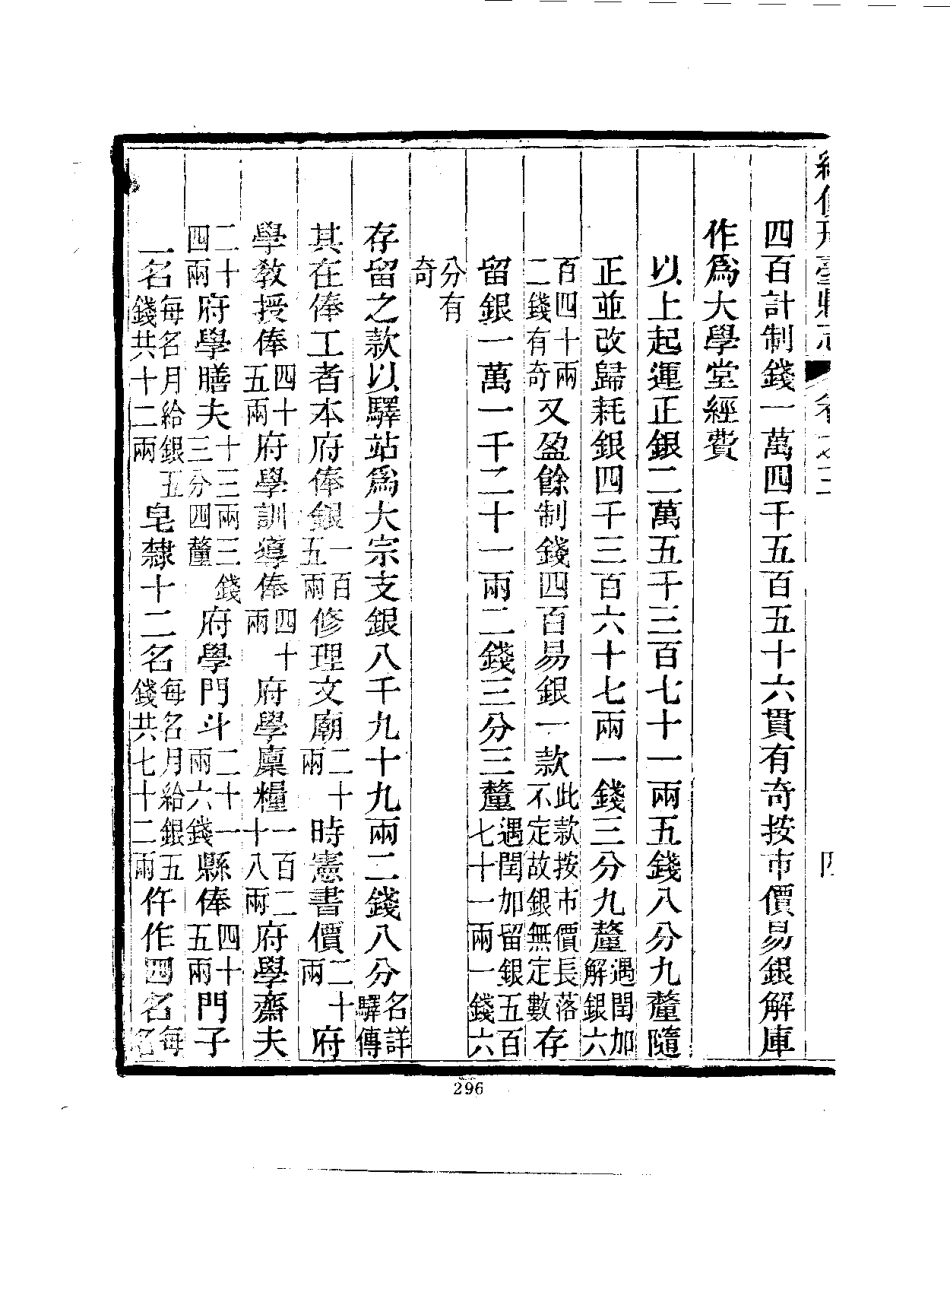 續修邢臺縣志 卷之三 四
四百計制錢一萬四千五百五十六貫有奇按市價易銀解庫
作爲大學堂經費
以上起運正銀二萬五千三百七十一兩五錢八分九釐隨
正並改歸耗銀四千三百六十七兩一錢三分九釐遇閏加解銀六
百四十兩二錢有奇又盈餘制錢四百易銀一款此款按市價長落不定故銀無定數存
留銀一萬一千二十一兩二錢三分三釐遇閏加留銀五百七十一兩一錢六
分有奇
存留之款以驛站爲大宗支銀八千九十九兩二錢八分名詳驛傳
其在俸工者本府俸銀一百五兩修理文廟二十兩時憲書價二十兩府
學教授俸四十五兩府學訓導俸四十兩府學廩糧一百二十八兩府學齋夫
二十四兩府學膳夫十三兩三錢三分四釐府學門斗二十一兩六錢縣俸四十五兩門子
二名每名月給銀五錢共十二兩皂隸十二名每名月給銀五錢共七十二兩仵作四名每名
296